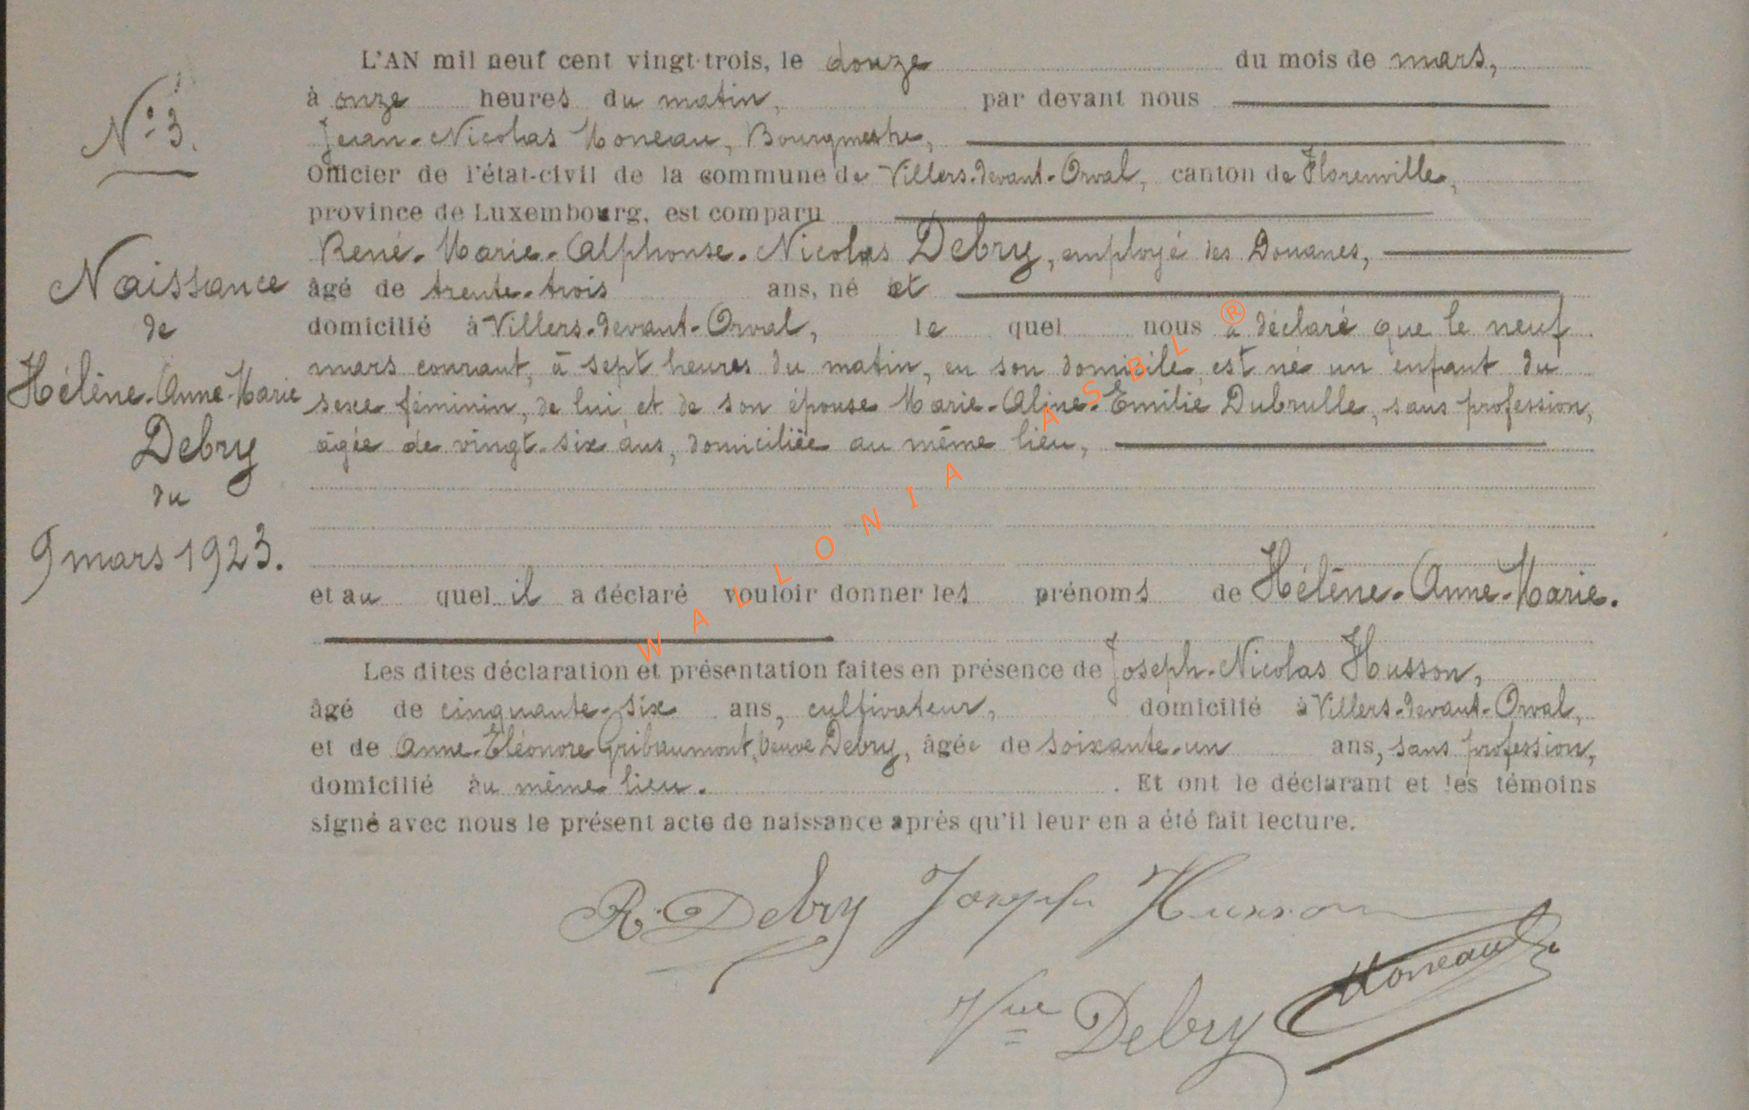 N° 3.
Naissance
de
Hélène-Anne-Marie
Debry
du
9 mars 1923.
L'AN mil neuf cent vingt-trois, le douze du mois de mars,
à onze heures du matin, par devant nous
Jean-Nicolas Moneau, Bourgmestre,
Officier de l'état-civil de la commune de Villers-devant-Orval, canton de Florenville,
province de Luxembourg, est comparu
René-Marie-Alphonse-Nicolas Debry, employé des Douanes,
âgé de trente-trois ans, né et
domicilié à Villers-devant-Orval, le quel nous a déclaré que le neuf
mars courant, à sept heures du matin, en son domicile, est né un enfant du
sexe féminin, de lui et de son épouse Marie-Aline-Emilie Dubrulle, sans profession,
âgée de vingt-six ans, domiciliée au même lieu,
et au quel il a déclaré vouloir donner les prénoms de Hélène-Anne-Marie.
Les dites déclaration et présentation faites en présence de Joseph-Nicolas Husson,
âgé de cinquante-six ans, cultivateur, domicilié à Villers-devant-Orval,
et de Anne-Eléonore Gribaumont, veuve Debry, âgée de soixante-un ans, sans profession,
domicilié au même lieu. . Et ont le déclarant et les témoins
signé avec nous le présent acte de naissance après qu'il leur en a été fait lecture.
R. Debry Joseph Husson
Vve Debry Moneau
WALLONIA ASBL ®